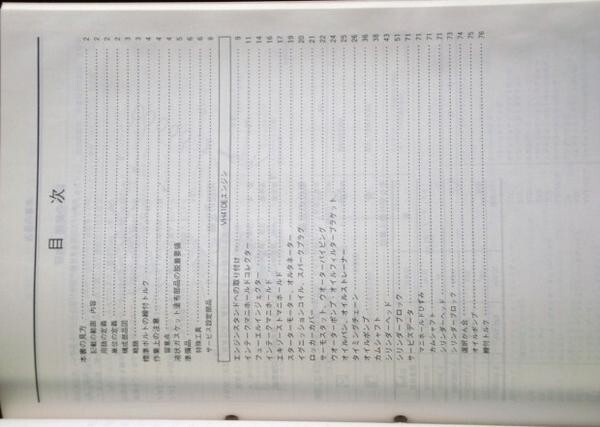 目次
本書の見方 2
記載の範囲・内容 2
用語の定義 2
単位の定義 2
構成部品図 3
略語 3
標準ボルトの締付トルク 4
作業上の注意 4
留意点 4
液状ガスケット塗布部品の脱着要領 5
準備品 6
特殊工具 6
サービス設定部品 8
VH41DEエンジン
エンジンスタンドへの取り付け 9
インテークマニホールドコレクター 11
フューエルインジェクター 14
インテークマニホールド 16
エキゾーストマニホールド 17
スターターモーター、オルタネーター 19
イグニッションコイル、スパークプラグ 20
ロッカーカバー 21
サーモスタット、ウオーターパイピング 22
ウオーターポンプ、オイルフィルターブラケット 24
オイルパン、オイルストレーナー 25
タイミングチェーン 26
オイルポンプ 36
カムシャフト 38
シリンダーヘッド 43
シリンダーブロック 51
サービスデータ 71
マニホールドひずみ 71
カムシャフト 71
シリンダーヘッド 71
シリンダーブロック 73
選択かん合 74
オイルポンプ 75
締付トルク 76